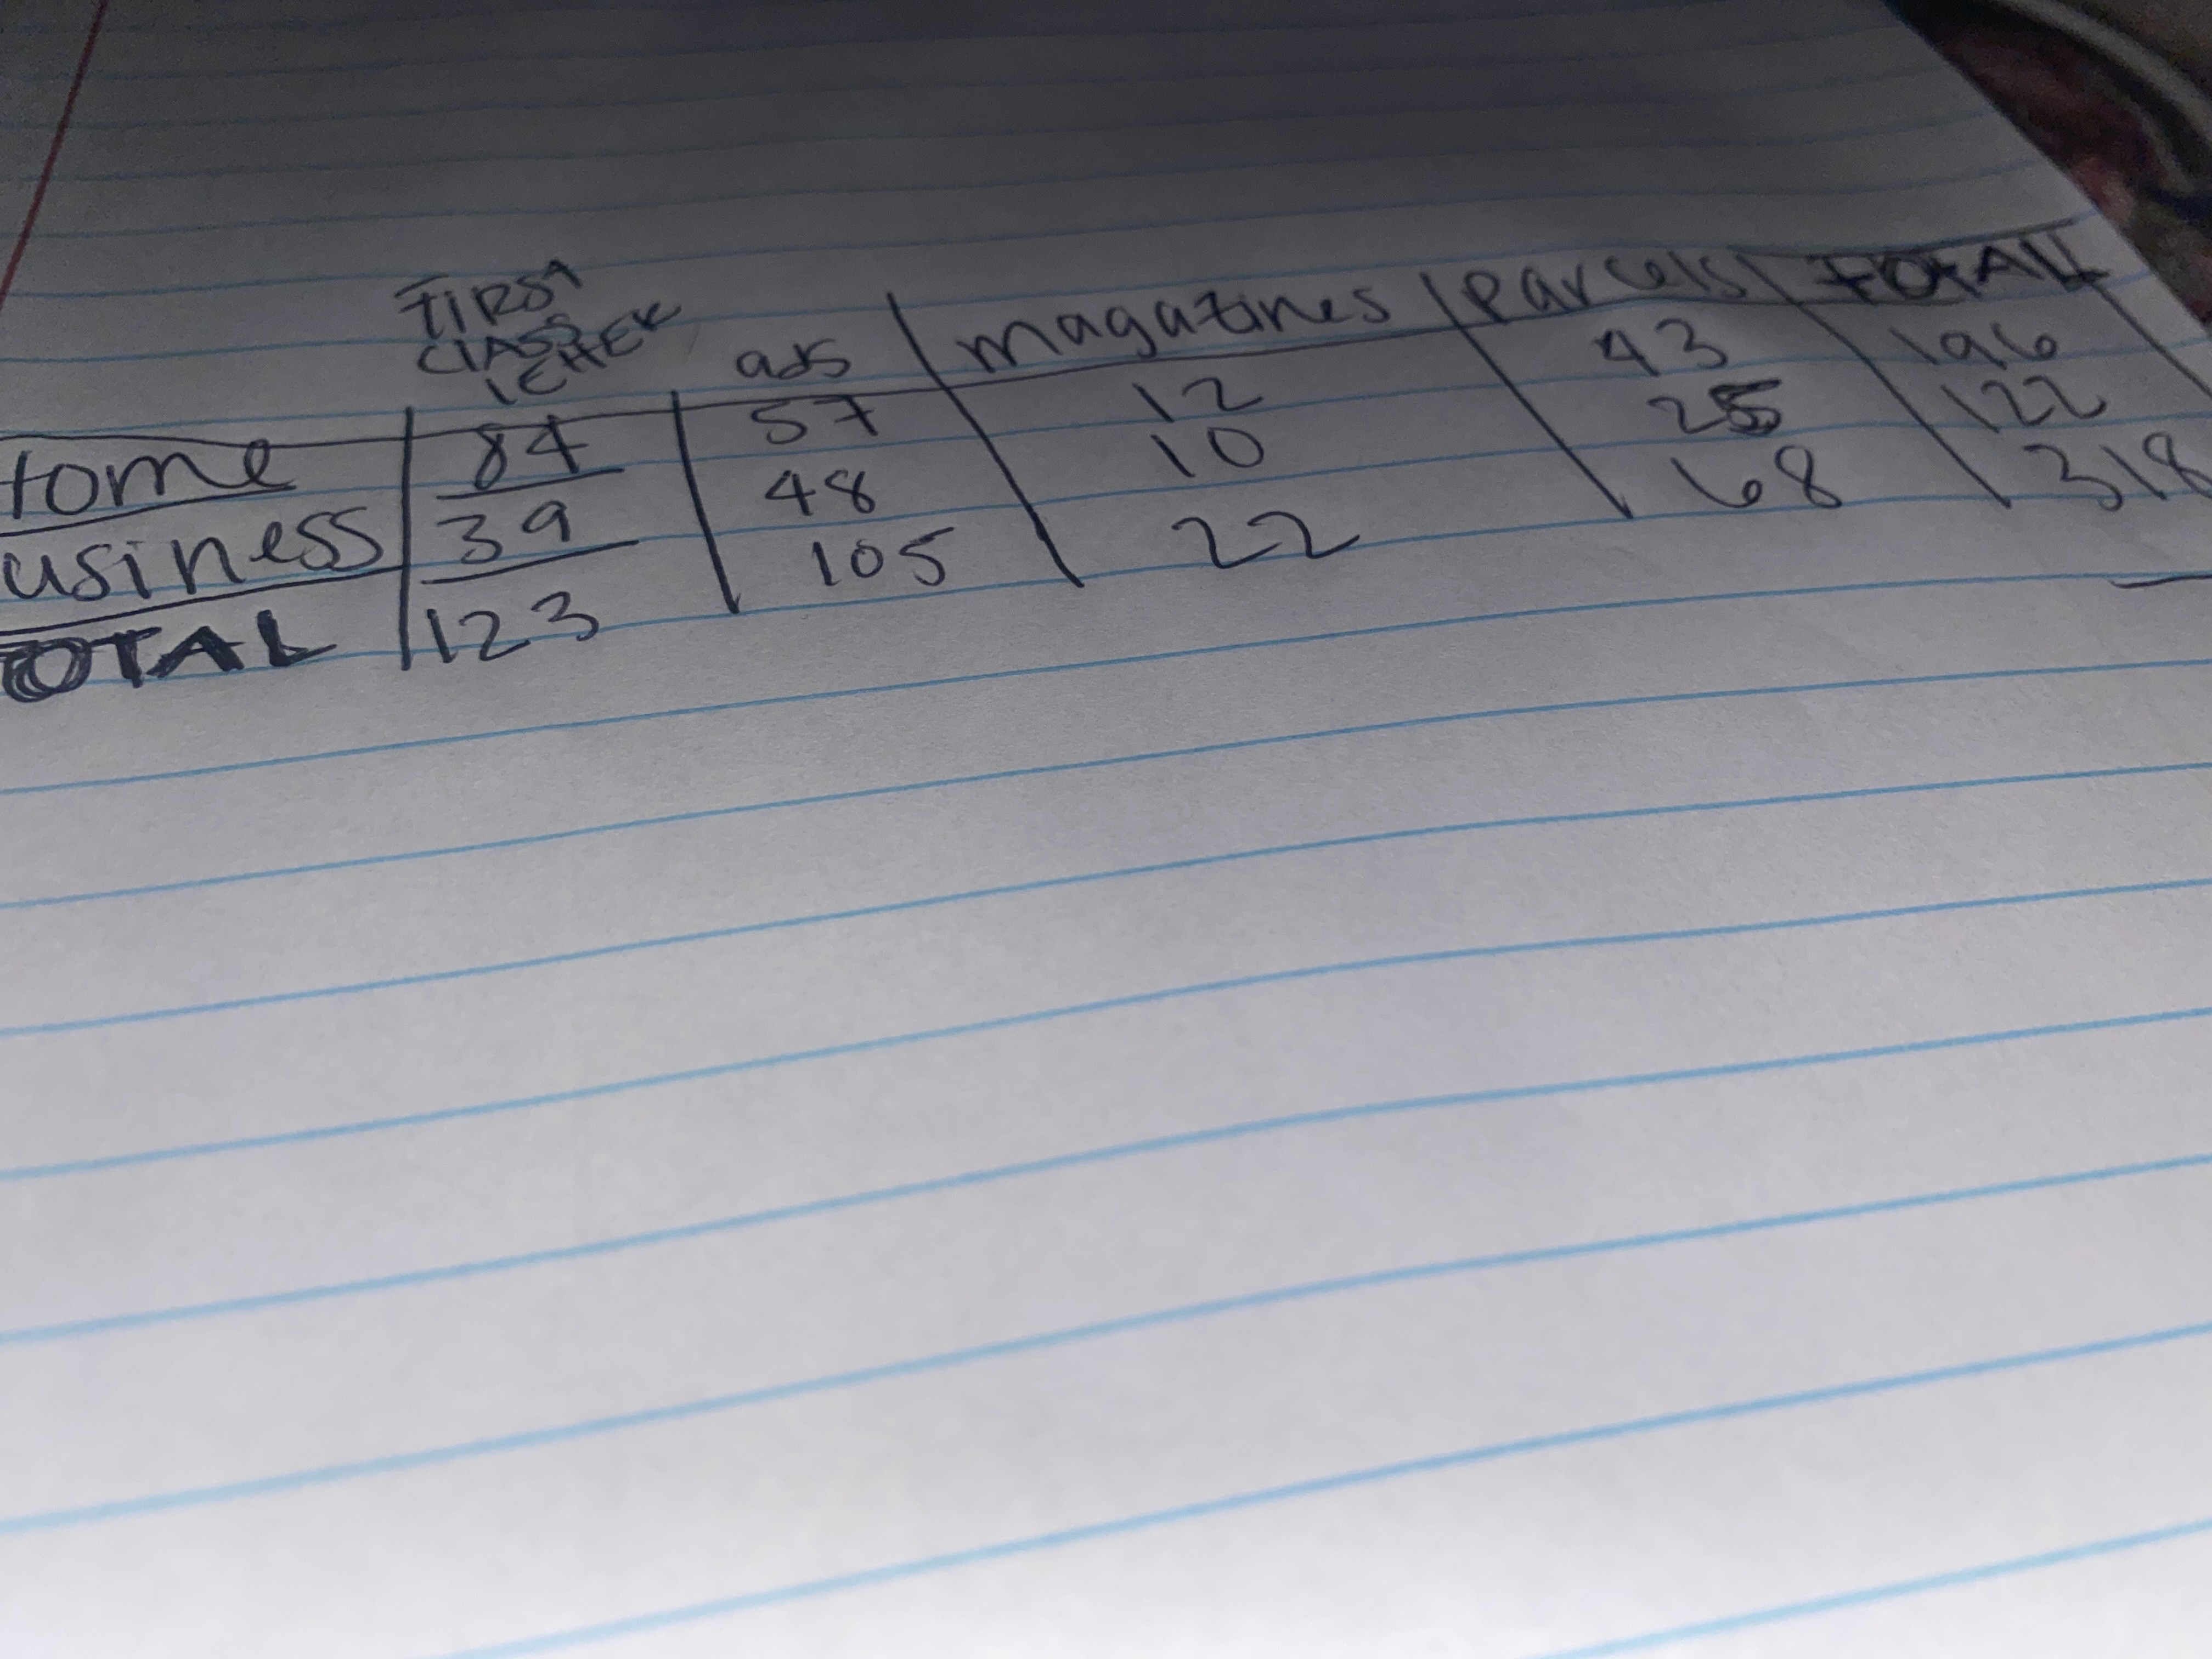 FIRST
CLASS
letter ads magazines Parcels TOTAL
Home 84 57 12 43 196
usiness 39 48 10 25 122
OTAL 123 105 22 68 318